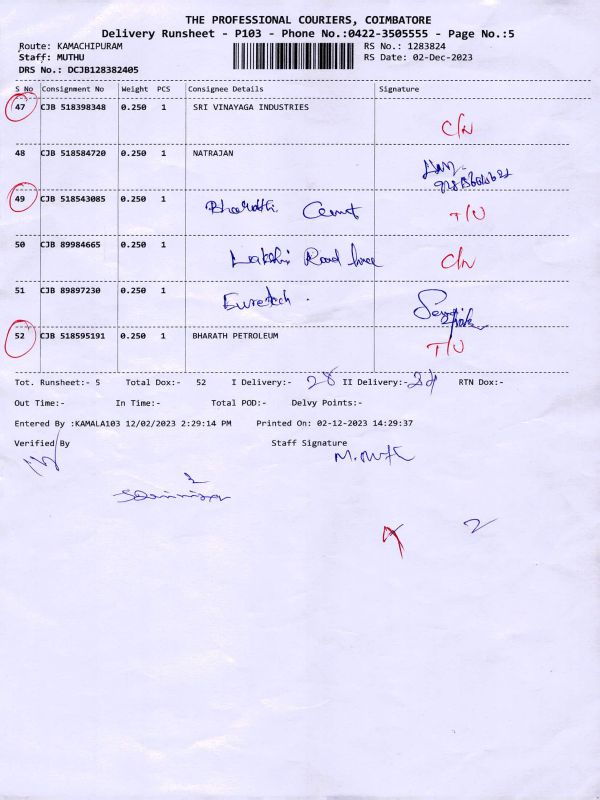 THE PROFESSIONAL COURIERS, COIMBATORE
Delivery Runsheet - P103 - Phone No.:0422-3505555 - Page No.:5
Route: KAMACHIPURAM RS No.: 1283824
Staff: MUTHU RS Date: 02-Dec-2023
DRS No.: DCJB128382405
S No Consignment No Weight PCS Consignee Details Signature
47 CJB 518398348 0.250 1 SRI VINAYAGA INDUSTRIES C/N
48 CJB 518584720 0.250 1 NATRAJAN
49 CJB 518543085 0.250 1 Bharathi Cemt T/U
50 CJB 89984665 0.250 1 Lakshi Road C/N
51 CJB 89897230 0.250 1 Euretech.
52 CJB 518595191 0.250 1 BHARATH PETROLEUM T/U
Tot. Runsheet:- 5 Total Dox:- 52 I Delivery:- 28 II Delivery:- RTN Dox:-
Out Time:- In Time:- Total POD:- Delvy Points:-
Entered By :KAMALA103 12/02/2023 2:29:14 PM Printed On: 02-12-2023 14:29:37
Verified By Staff Signature
2
2